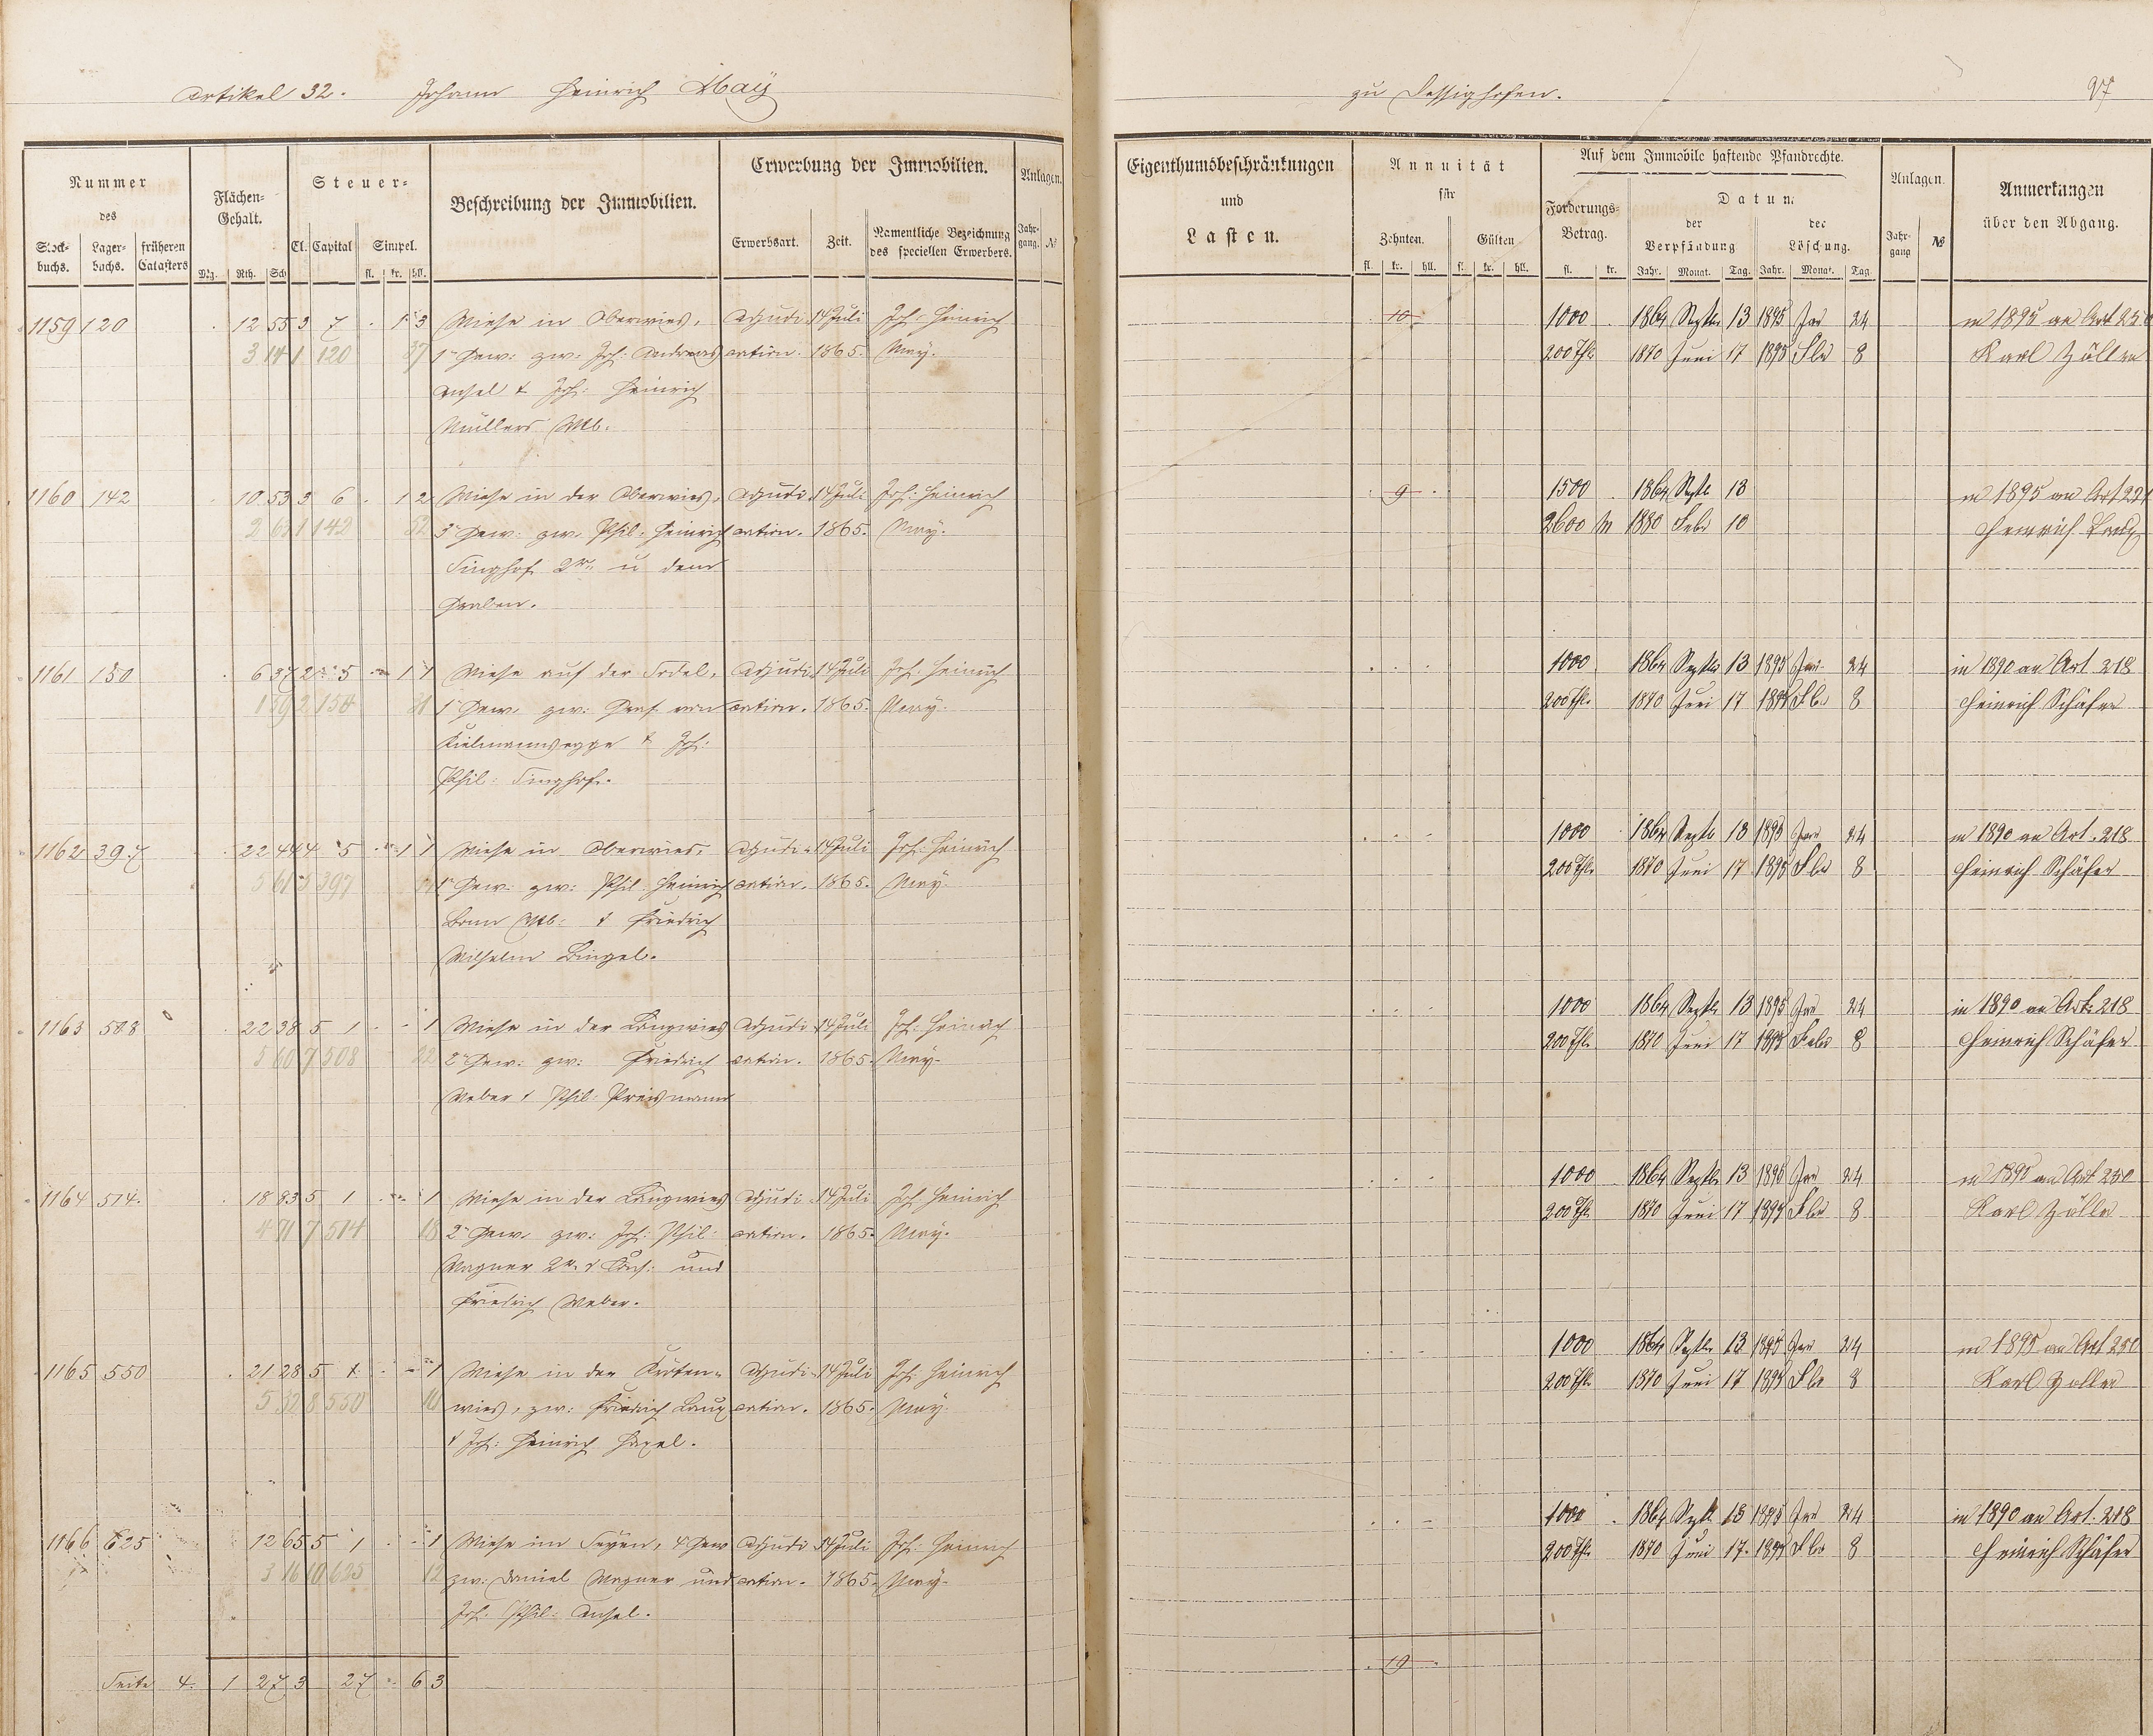 Artikel 32. Johann Heinrich May
zu Dessighofen. 97
Nummer des
Stock-buchs. Lager-buchs. früheren Catasters
Flächen-Gehalt.
Mg. Rth. Sch
Steuer-
Cl. Capital Simpel.
fl. kr. hll.
Beschreibung der Immobilien.
Erwerbung der Immobilien.
Erwerbsart. Zeit. Namentliche Bezeichnung des speciellen Erwerbers.
Anlagen.
Jahr-gang. №
Eigenthumsbeschränkungen
und
Lasten.
Annuität
für
Zehnten. Gülten
fl. kr. hll. fl. kr. hll.
Auf dem Immobile haftende Pfandrechte.
Forderungs-Betrag.
fl. kr.
Datum
der Verpfändung der Löschung.
Jahr. Monat. Tag. Jahr. Monat. Tag
Anlagen.
Jahr-gang №
Anmerkungen
über den Abgang.
1159 120 12 55 3 7 . 1 3 Wiese in Oberwies, Adjudi- 14 Juli Joh: Heinrich
3 14 1 120 37 1te Gew: zw: Joh: Andreas cation. 1865. May.
Ansel & Joh: Heinrich
Müllers Wb.
10 1000 . 1864 Septbr 13 1895 Jan 24 in 1895 an Art 250
200 Thlr 1870 Juni 17 1895 Febr 8 Karl Zöller
1160 142 10 53 3 6 . 1 2 Wiese in der Oberwies, Adjudi- 14 Juli Joh: Heinrich
2 63 1 142 52 3te Gew: zw. Phil: Heinrich cation. 1865. May.
Singhof 2r u dem
Graben.
9 1500 . 1864 Septb 13 in 1895 an Art 221
2600 M 1880 Febr 10 Heinrich Laux
1161 150 6 37 2 5 1 1 Wiese auf der Sodel, Adjudi- 14 Juli Joh. Heinrich
1 59 2 150 21 1te Gew. zw: Graf von cation. 1865. May.
Kielmannsegge & Joh:
Phil: Singhof.
1000 1864 Septbr 13 1895 Jan 24 in 1890 an Art. 218
200 Thlr 1870 Juni 17 1895 Febr 8 Heinrich Schäfer
1162 397 22 44 4 5 1 1 Wiese in Oberwies, Adjudi- 14 Juli Joh: Heinrich
5 61 5 397 1te Gew: zw: Phil: Heinrich cation. 1865. May.
Wb: & Friedrich
Wilhelm Bingel.
1000 1864 Septb 13 1895 Jan 24 in 1890 an Art. 218
200 Thlr 1870 Juni 17 1895 Febr 8 Heinrich Schäfer
1163 508 22 38 5 1 . - 1 Wiese in der Langwies Adjudi- 14 Juli Joh: Heinrich
5 60 7 508 22 2te Gew: zw: Friedrich cation. 1865. May.
Weber & Phil: Preismann
1000 1864 Septb 13 1895 Jan 24 in 1890 an Art. 218
200 Thlr 1870 Juni 17 1895 Febr 8 Heinrich Schäfer
1164 514. 18 83 5 1 . 1 Wiese in der Langwies Adjudi- 14 Juli Joh: Heinrich
4 71 7 514 18 2te Gew. zw: Joh: Phil: cation. 1865. May.
Wagner 2r und
Friedrich Weber.
1000 1864 Septb 13 1895 Jan 24 in 1895 an Art 250
200 Thlr 1870 Juni 17 1895 Febr 8 Karl Zöller
1165 550 21 28 5 1. . - 1 Wiese in der Kröten- Adjudi- 14 Juli Joh: Heinrich
5 32 8 550 16 wies, zw: Friedrich Laux cation. 1865. May.
& Joh: Heinrich
1000 1864 Septb 13 1895 Jan 24 in 1895 an Art 250
200 Thlr 1870 Juni 17 1895 Febr 8 Karl Zöller
1166 625 12 65 5 1 . - 1 Wiese im Seyen, 4te Gew Adjudi- 14 Juli Joh: Heinrich
3 16 10 625 12 zw: Daniel Wagner und cation. 1865. May.
Joh. Phil: Ansel.
1000 . 1864 Septb 13 1895 Jan 24 in 1890 an Art. 218
200 Thlr 1870 Juni 17. 1895 Febr 8 Heinrich Schäfer
Seite 4. 1 27 3 27 . 6 3
19